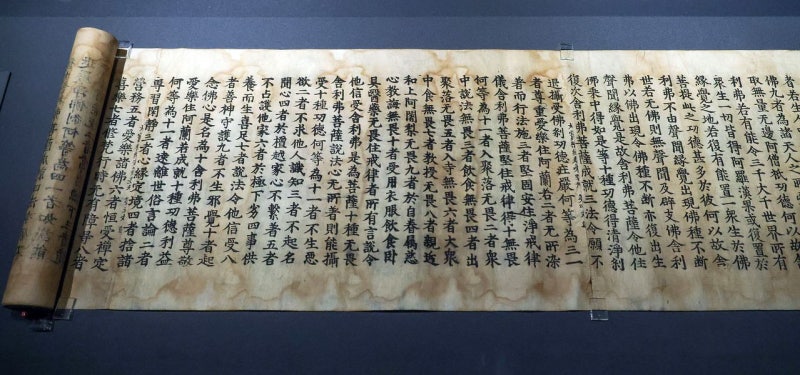 佛九者為諸天人之
取無量无邊阿僧祇功德何以故舍
利弗若有能令三千大千世界所有
眾生一切皆得阿羅漢果若復置於
緣覺之地若復有能置一眾生於佛
菩提此之功德甚多於彼何以故舍
利弗不由聲聞緣覺出現佛種不斷
世若无佛則無聲聞及辟支佛舍利
弗以佛出現令佛種不斷亦復出生
聲聞緣覺是故舍利弗菩薩令他住
佛乘中得如是等十種功德得清淨剎
復次舍利弗菩薩成就三法令願不
退攝受佛剎功德莊嚴何等為三一
者尊重愛樂住阿蘭若二者无所染
著而行法施三者堅固安住淨戒律
儀舍利弗菩薩堅住戒律得十無畏
何等為十一者入聚落无畏二者眾
中說法無畏三者飲食無畏四者出
聚落无畏五者入寺無畏六者大眾
中食無畏七者教授无畏八者親近
和上阿闍梨无畏九者於自眷属慈
心教誨無畏十者受用衣服飲食卧
具醫藥无畏住戒律者所有言說令
他信受舍利弗是為菩薩十種无畏
舍利弗菩薩說法心无所著則能攝
受十種功德何等為十一者不生惡
欲二者不求他人識知三者不起名
聞心四者於檀越家心不繫著五者
不占護他家六者於極下劣四事供
養而生喜足七者說法令他信受八
者善神守護九者不生邪覺十者起
念佛心是名為十舍利弗菩薩尊敬
愛樂住阿蘭若成就十種功德利益
何等為十一者遠離世俗言論二者
尊習閑静三者心緣定境四者捨諸
營務五者愛樂諸佛六者恒受禪定
喜樂七者修梵行時无有障礙八者